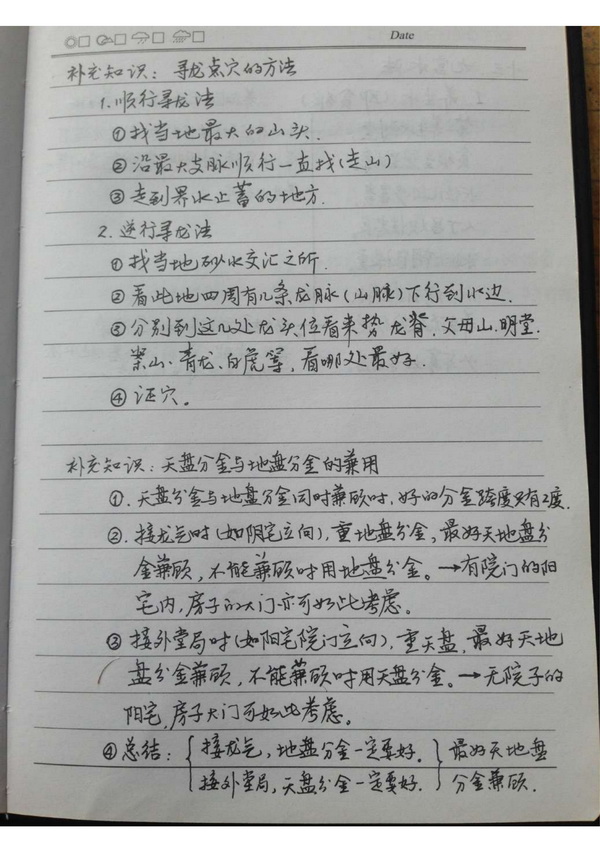 Date
补充知识：寻龙点穴的方法
1.顺行寻龙法
①找当地最大的山头.
②沿最大支脉顺行一直找(走山)
③走到界水止蓄的地方.
2.逆行寻龙法
①找当地砂水交汇之所.
②看此地四周有几条龙脉(山脉)下行到水边.
③分别到这几处龙头位看来势龙脊.父母山.明堂.
案山、青龙、白虎等,看哪处最好.
④证穴。
补充知识:天盘分金与地盘分金的兼用
①.天盘分金与地盘分金同时兼顾时,好的分金跨度只有2度.
②.接龙气时(如阴宅立向),重地盘分金,最好天地盘分
金兼顾,不能兼顾时用地盘分金。→有院门的阳
宅内,房子的大门亦可如此考虑。
③接外堂局时(如阳宅院门立向),重天盘,最好天地
盘分金兼顾,不能兼顾时用天盘分金。→无院子的
阳宅,房子大门可如此考虑。
④总结:{接龙气,地盘分金一定要好.}最好天地盘
接外堂局,天盘分金一定要好.}分金兼顾.